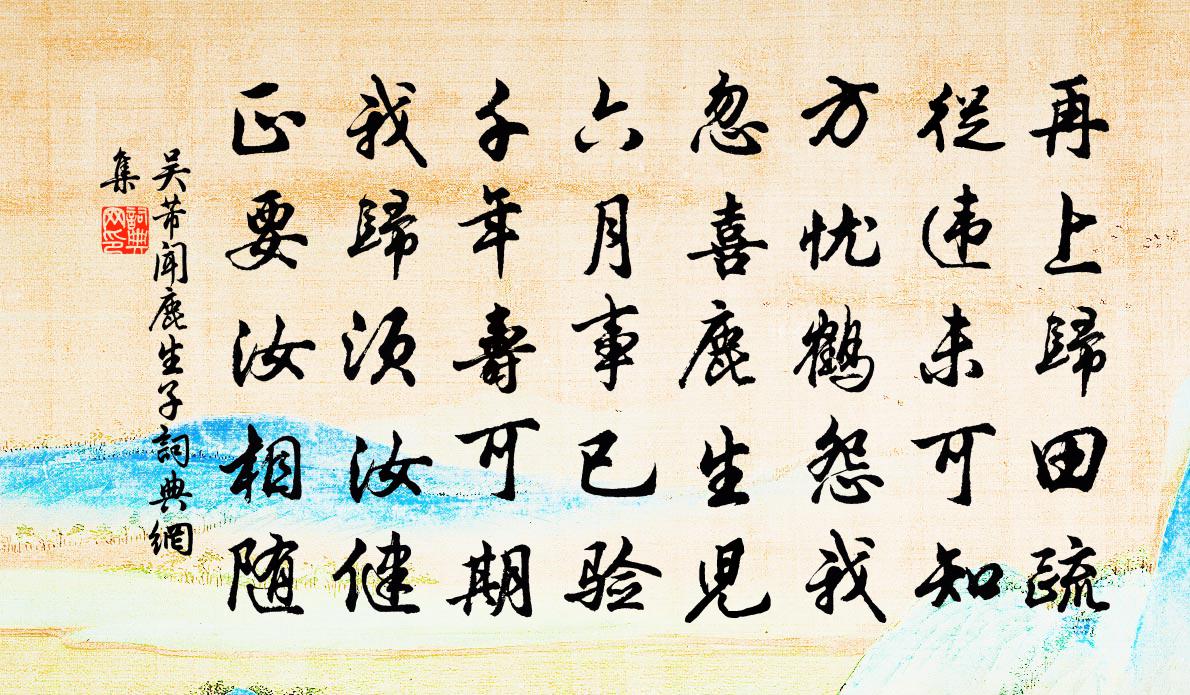 再上歸田疏
從违未可知
方忧鶴怨我
忽喜鹿生児
六月事已验
千年壽可期
我歸须汝健
正要汝相随
吴芾闻鹿生子詞典網
集
詞典
网印